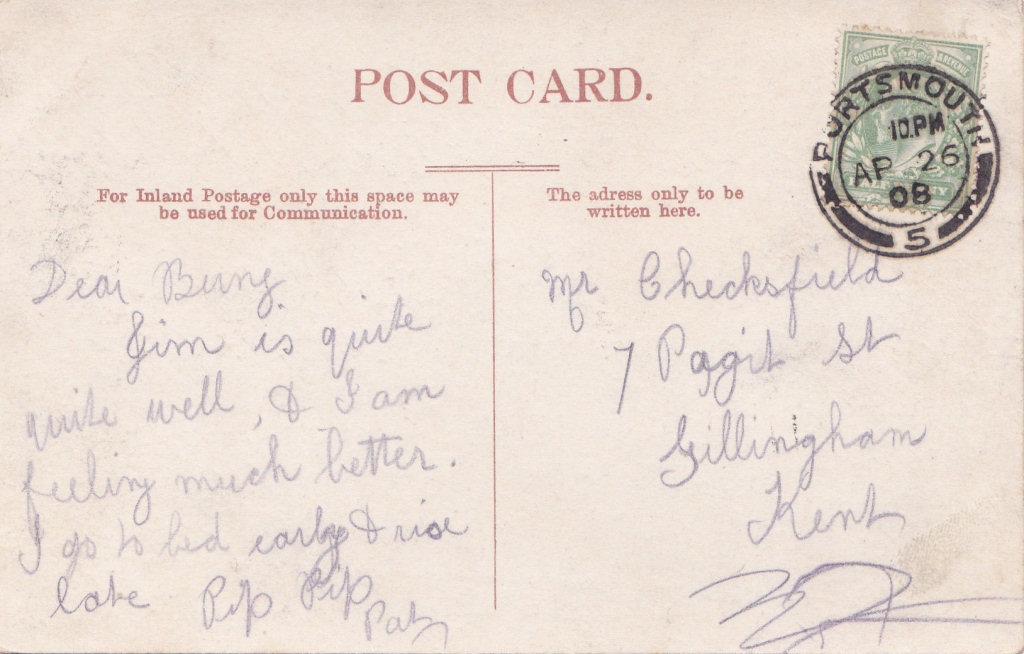 POST CARD.
For Inland Postage only this space may
be used for Communication.
The adress only to be
written here.
POSTAGE & REVENUE
PORTSMOUTH
10.PM
AP 26
08
5
Dear Bung
Jim is quite
quite well, & I am
feeling much better.
I go to bed early & rise
late Pip Pip
Pat
Mr Checksfield
7 Pagit St
Gillingham
Kent